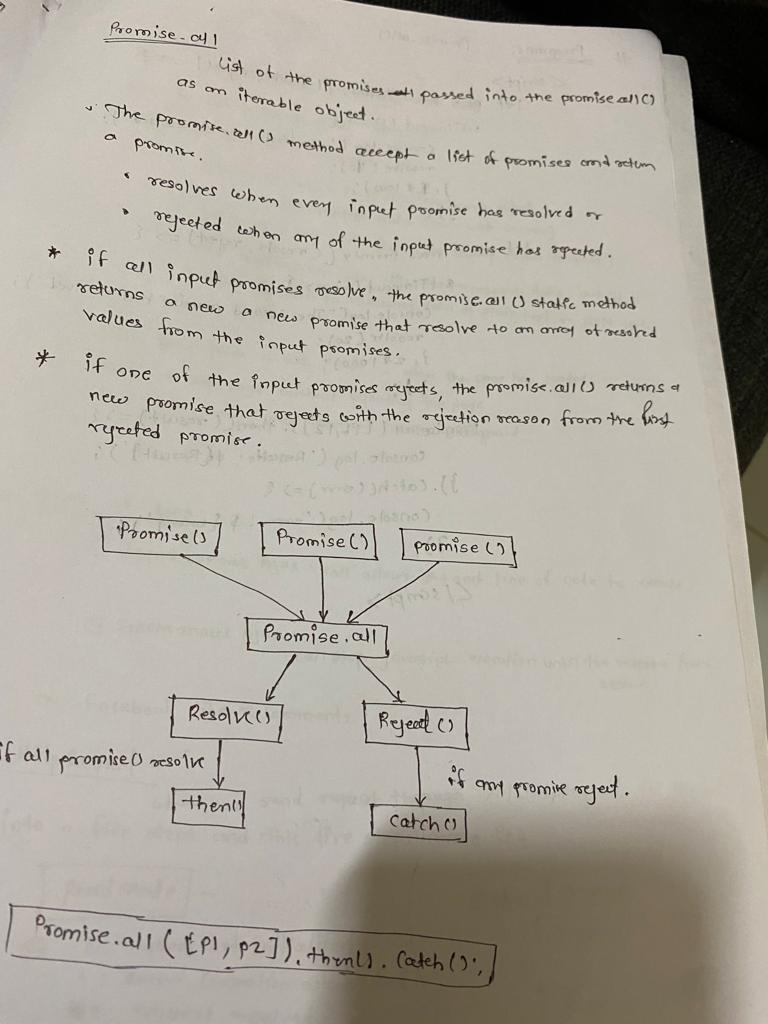 Promise.all
List of the promises passed into the promise.all()
as an iterable object.
The promise.all() method accept a list of promises and return
a promise.
• resolves when every input promise has resolved or
• rejected when any of the input promise has rejected.
* if all input promises resolve, the promise.all() static method
returns a new a new promise that resolve to an array of resolved
values from the input promises.
* if one of the input promises rejects, the promise.all() returns a
new promise that rejects with the rejection reason from the first
rejected promise.
Promise() Promise() promise()
Promise.all
Resolve() Reject()
if all promise() resolve
if any promise reject.
then()
catch()
Promise.all([p1, p2]).then().catch();